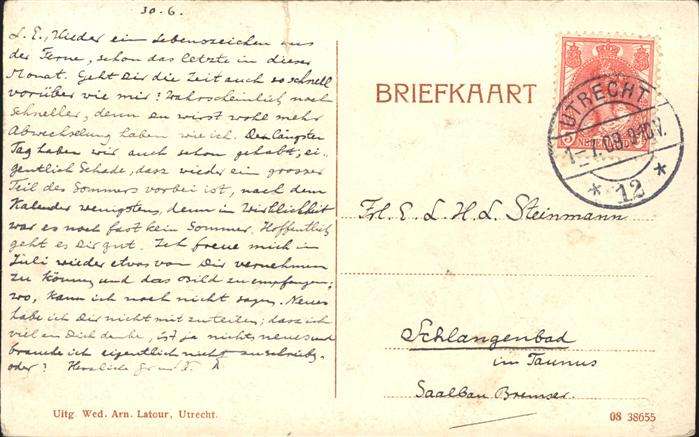 30.6.
L. E., Wieder ein Lebenszeichen aus
der Ferne, schon das letzte in dieser
Monat. Geht Dir die Zeit auch so schnell
vorüber wie mir? Wahrscheinlich noch
schneller, denn du wirst wohl mehr
Abwechselung haben wie ich. Den längsten
Tag haben wir auch schon gehabt; ei-
gentlich Schade, dass wieder ein grosser
Teil des Sommers vorbei ist, nach dem
Kalender wenigstens, denn in Wirklichkeit
war es noch fast kein Sommer. Hoffentlich
geht es Dir gut. Ich freue mich im
Juli wieder etwas von Dir vernehmen
zu können und das Bild zu empfangen;
wo, kann ich noch nicht sagen. Neues
habe ich Dir nicht mitzuteilen; dass ich
viel an Dich denke, ist ja nichts neues und
brauche ich eigentlich nicht zu schreiben,
oder? Herzliche
Uitg. Wed. Arn. Latour, Utrecht.
BRIEFKAART
UTRECHT
1-7.09.9-10V.
* 12 *
Frl. E. L. H. L. Steinmann
Schlangenbad
im Taunus
Saalbau Bremser.
08 38655